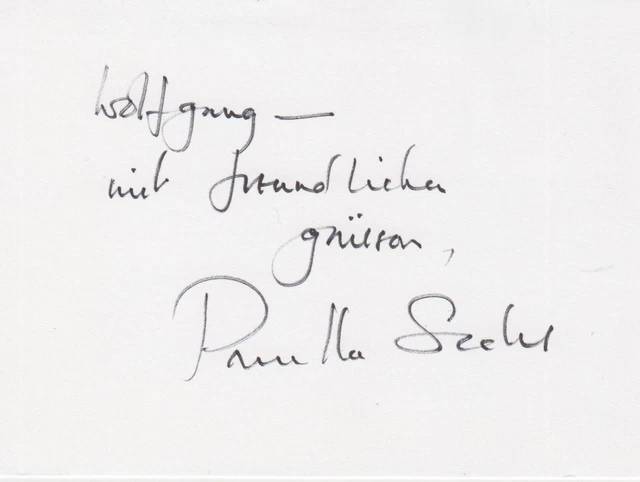 Wolfgang —
mit freundlichen
grüssen,
Prunella Scales